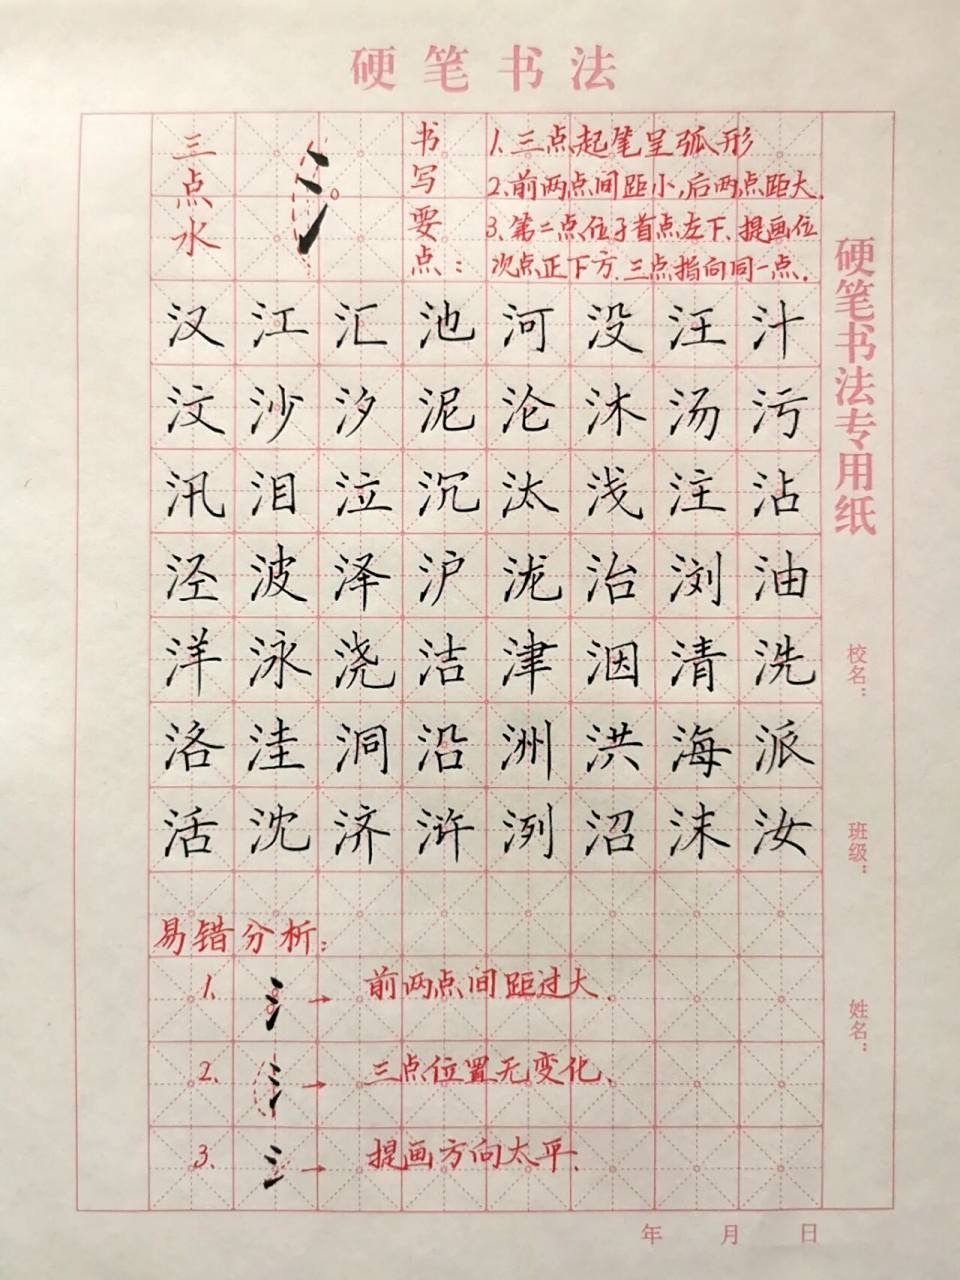 硬笔书法
三点水
氵
书写要点：
1、三点起笔呈弧形
2、前两点间距小，后两点距大.
3、第二点位于首点左下、提画位
次点正下方.三点指向同一点.
汉江汇池河没汪汁
汶沙汐泥沦沐汤污
汛泪泣沉汰浅注沾
泾波泽沪泷治浏油
洋泳浇洁津洇清洗
洛洼洞沿洲洪海派
活沈济浒洌沼沫汝
易错分析：
1、氵→前两点间距过大.
2、氵→三点位置无变化、
3、氵→提画方向太平.
硬笔书法专用纸
校名：
班级：
姓名：
年 月 日